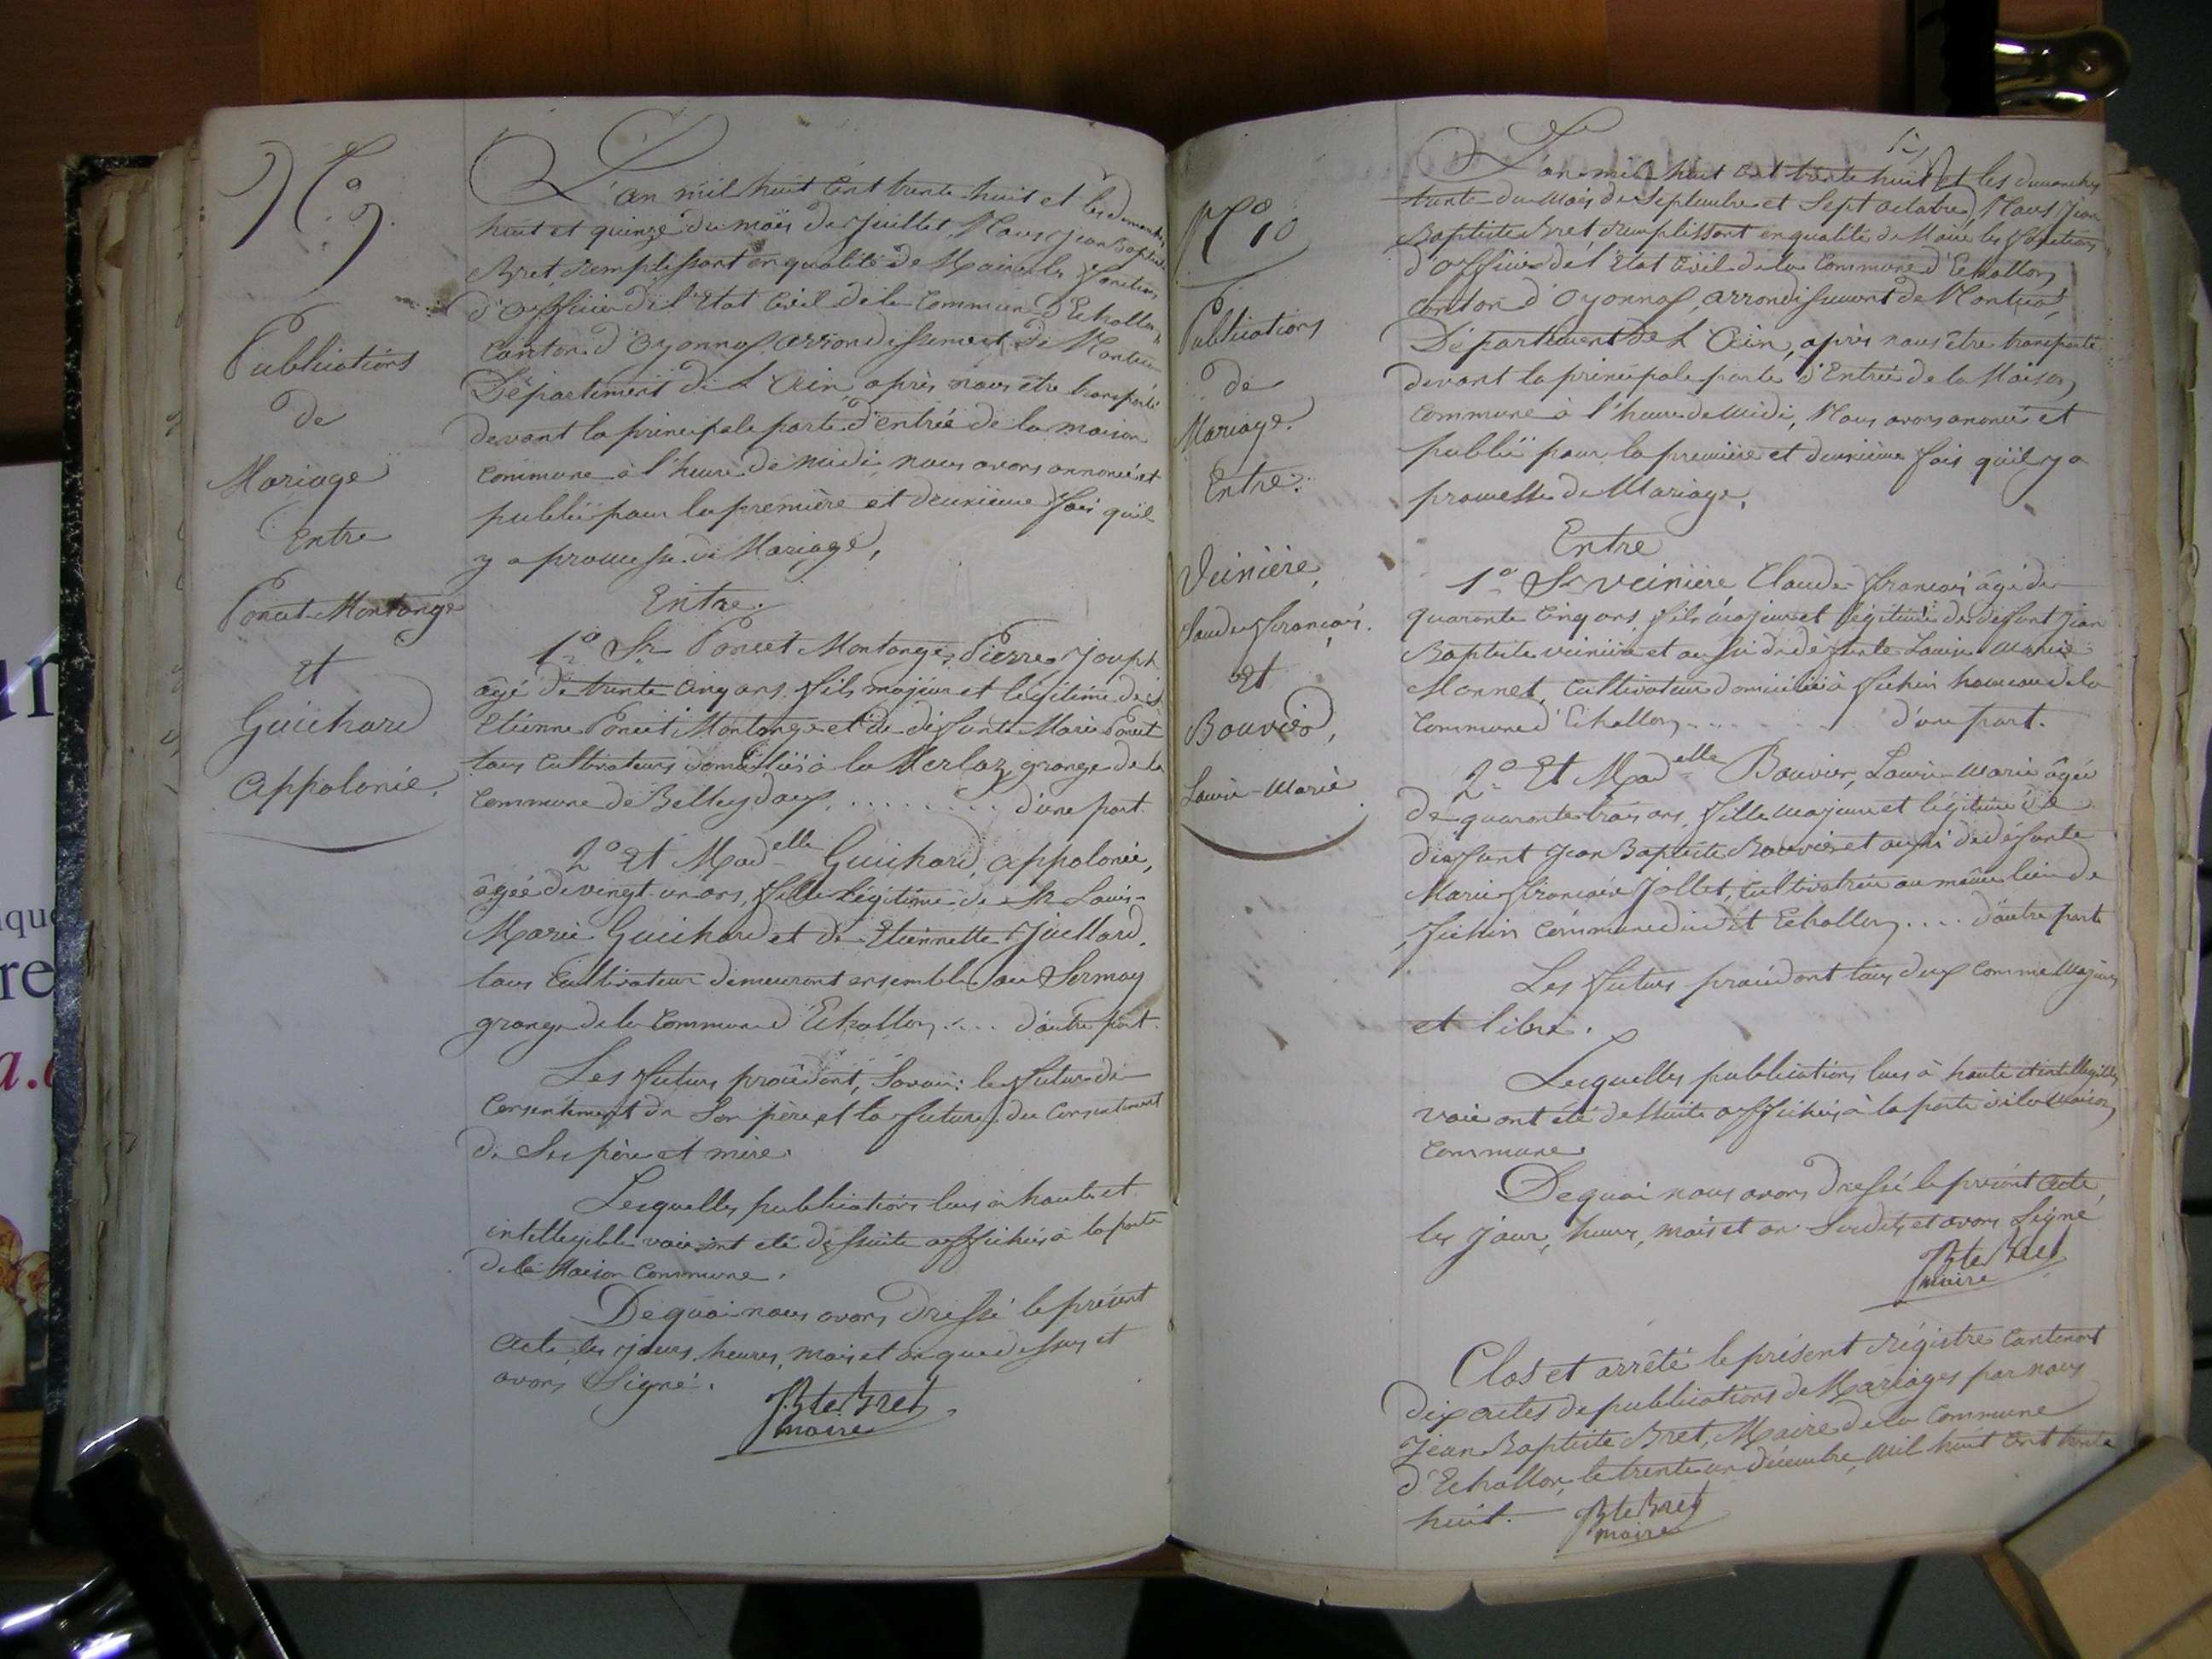 N.o 9.
Publications
de
Mariage
Entre
Poncet-Montange
et
Guichard
Appolonie.
L'an mil huit cent trente-huit et les dimanches
huit et quinze du mois de Juillet, Nous Jean Baptiste
Bret, remplissant en qualité de Maire les fonctions
d'officier de l'Etat Civil de la Commune d'Echallon,
Canton d'Oyonnax arrondissement de Nantua
Département de L'Ain, après nous être transporté
devant la principale porte d'entrée de la maison
Commune à l'heure de midi, nous avons annoncé et
publié pour la première et deuxième fois qu'il
y a promesse de Mariage,
Entre.
1.o Sr. Poncet Montange, Pierre Joseph
âgé de trente cinq ans, fils majeur et légitime de
Etienne Poncet Montange et de défunte Marie Poncet
tous Cultivateurs domiciliés à la Merlaz, grange de la
Commune de Belleydoux, ........ d'une part.
2.o Et Madelle Guichard, Appolonie,
âgée de vingt-un ans, fille légitime de Sr. Louis-
Marie Guichard et de Etiennette Juillard,
tous Cultivateur demeurant ensemble au Sermay
grange de la Commune d'Echallon, .... d'autre part.
Les futurs procèdont, Savoir: le futur du
Consentement de Son père, et la future, du Consentement
de Ses père et mère.
Lesquelles publications lues à haute et
intellegible voix ont été de suite affichées à la porte
de la Maison Commune.
De quoi nous avons dressé le présent
Acte, les jours, heures, mois et an que dessus et
avons Signé.
Bte Bret
maire
N.o 10
Publications
de
Mariage.
Entre.
Veinière,
Claude François.
Et
Bouvier,
Louise-Marie
L'an mil huit cent trente huit et les dimanches
trente du mois de Septembre et Sept octobre, Nous Jean
Baptiste Bret remplissant en qualité de Maire les fonctions
d'officier de l'Etat Civil de la Commune d'Echallon,
Canton d'Oyonnax, arrondissement de Nantua,
Département de L'Ain, après nous être transporté
devant la principale porte d'Entrée de la Maison
Commune à l'heure de Midi, Nous avons anoncé et
publié pour la première et deuxième fois qu'il y a
promesse de Mariage,
Entre
1.o Sr. Veinière, Claude-François âgé de
quarante cinq ans, fils majeur et légitime de défunt Jean
Baptiste Veinière et aussi de défunte Louise Marie
Monnet, Cultivateur domicilié à hameau de la
Commune d'Echallon, ........ d'une part.
2.o Et Madelle Bouvier, Louise-Marie âgée
de quarante trois ans, fille majeure et légitime de
défunt Jean Baptiste Bouvier et aussi de défunte
Marie Françoise Jollet, Cultivatrice au même lieu de
Commune dudit Echallon, .... d'autre part
Les futurs procèdont tous deux comme Majeurs
et libre.
Lesquelles publications lues à haute et intellegible
voix ont été de Suite affichées à la porte de la Maison
Commune.
De quoi nous avons dressé le présent Acte,
les jour, heure, mois et an Susdits et avons Signé
Bte Bret
maire
Clos et arrêté le présent régistre Contenant
dix actes de publications de Mariages par nous
Jean Baptiste Bret, Maire de la Commune
d'Echallon, le trente un décembre, mil huit cent trente
huit.
Bte Bret
maire